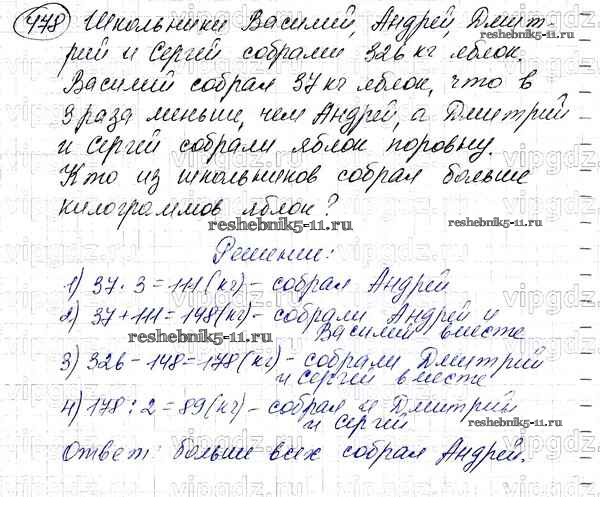 478 Школьники Василий, Андрей, Дмит-
рий и Сергей собрали 326 кг яблок.
Василий собрал 37 кг яблок, что в
3 раза меньше, чем Андрей, а Дмитрий
и Сергей собрали яблок поровну.
Кто из школьников собрал больше
килограммов яблок?
reshebnik5-11.ru
reshebnik5-11.ru
Решение:
1) 37 · 3 = 111 (кг) - собрал Андрей
2) 37 + 111 = 148 (кг) - собрали Андрей и
Василий вместе
reshebnik5-11.ru
3) 326 - 148 = 178 (кг) - собрали Дмитрий
и Сергей вместе
4) 178 : 2 = 89 (кг) - собрал и Дмитрий
и Сергей
Ответ: больше всех собрал Андрей.
vipgdz